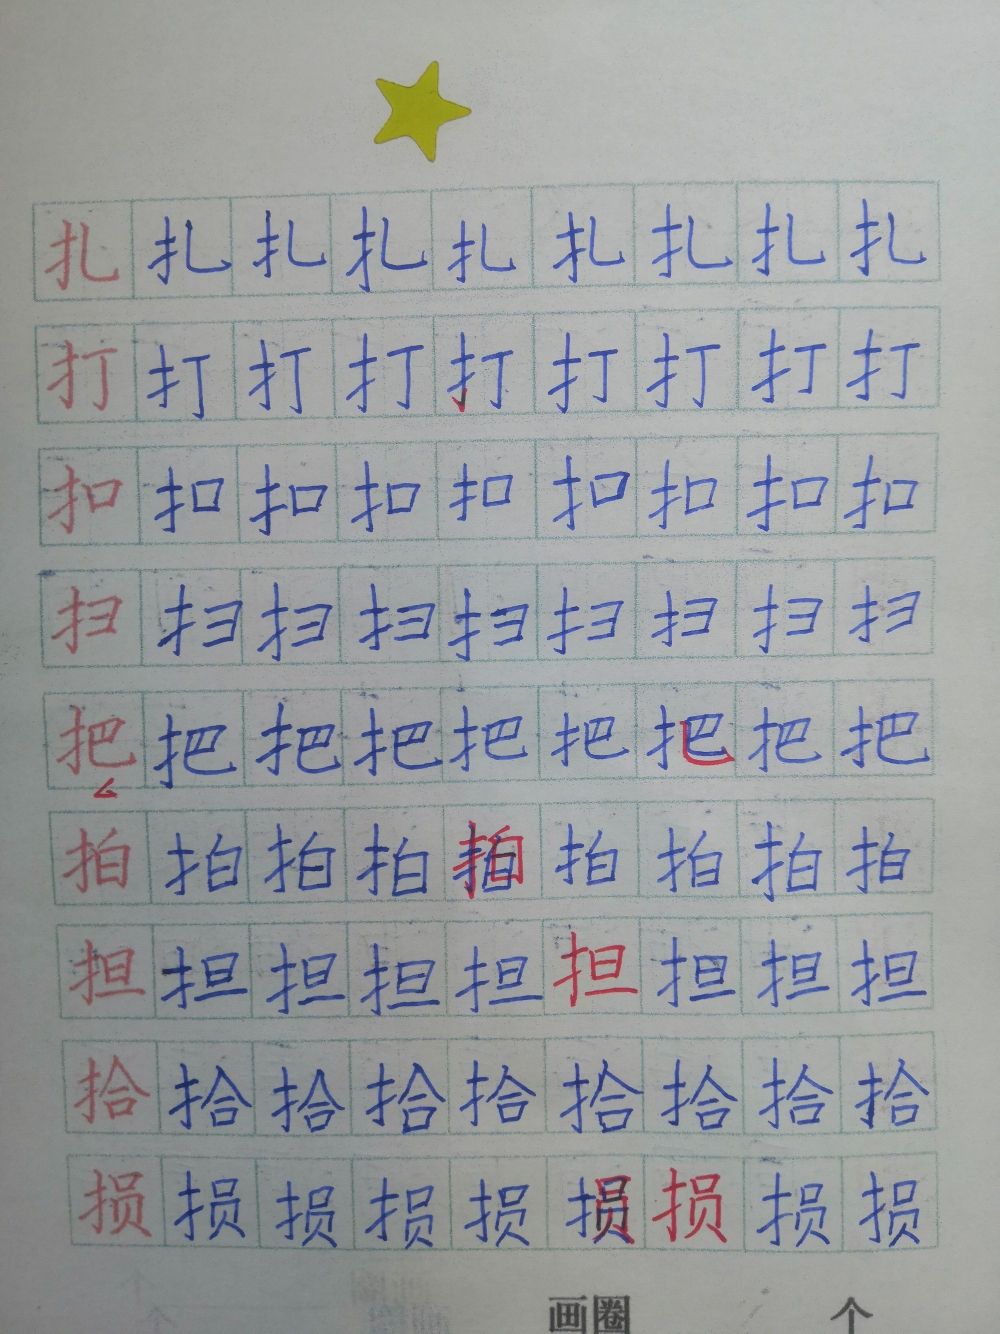 扎扎扎扎扎扎扎扎扎
打打打打打打打打打
扣扣扣扣扣扣扣扣扣
扫扫扫扫扫扫扫扫扫
把把把把把把把把把
拍拍拍拍拍拍拍拍拍
担担担担担担担担担
拾拾拾拾拾拾拾拾拾
损损损损损损损损损
画圈 个